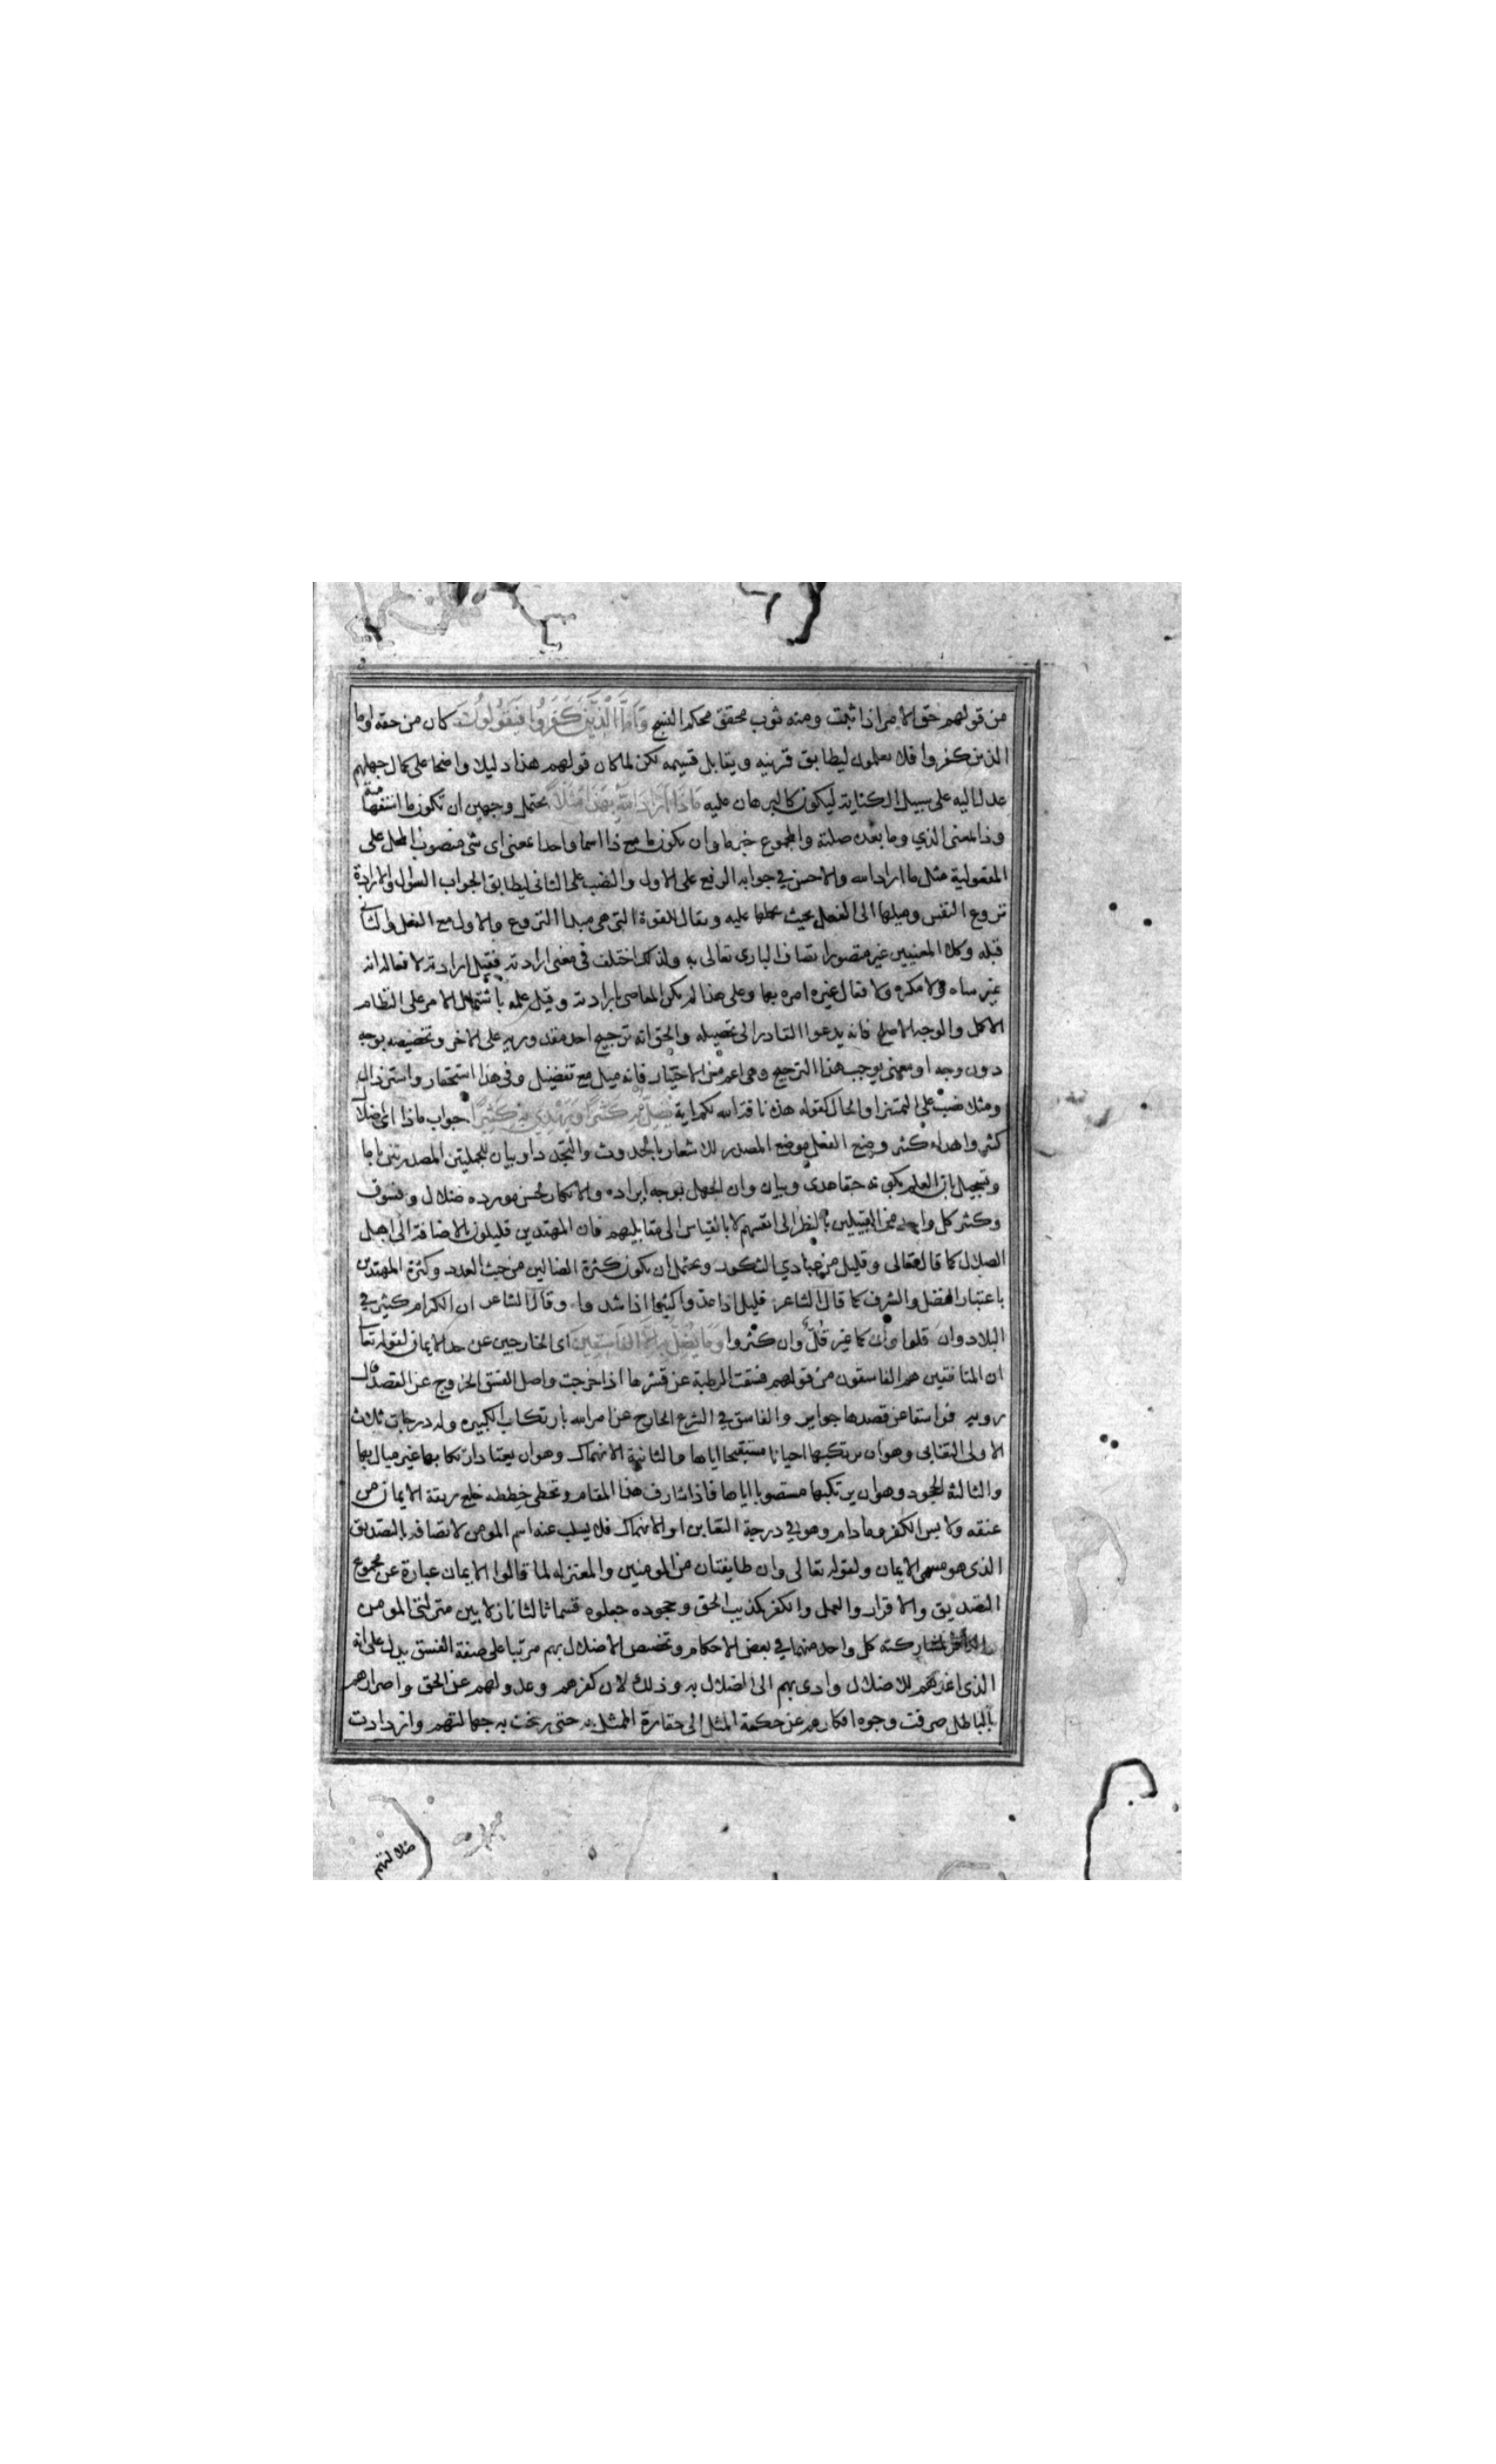 من قولهم حق الامر اذا ثبت ومنه ثوب محقق محكم النسج وَاَمَّا الَّذِينَ كَفَرُوا فَيَقُولُونَ كان من حقه واما
الذين كفروا فلا يعلمون ليطابق قرينه ويقابل قسيمه لكن لما كان قولهم هذا دليلا واضحا على كمال جهلهم
عدل اليه على سبيل الكناية ليكون كالبرهان عليه مَاذَا اَرَادَ اللَّهُ بِهَذَا مَثَلًا يحتمل وجهين ان تكون ما استفهامية
وذا بمعنى الذي وما بعده صلته والمجموع خبر ما وان يكون ما مع ذا اسما واحدا بمعنى اى شى منصوب المحل على
المفعولية مثل ما اراد الله والاحسن في جوابه الرفع على الاول والنصب على الثانى ليطابق الجواب السوال والارادة
نزوع النفس وميلها الى الفعل بحيث يحملها عليه ويقال للقوة التى هى مبدا النزوع والاول مع الفعل والثانى
قبله وكلا المعنيين غير متصور اتصاف البارى تعالى به ولذلك اختلف في معنى ارادته فقيل ارادته لافعاله انه
غير ساه ولا مكره ولافعال غيره امره بها وعلى هذا لم يكن المعاصى بارادته وقيل علمه باشتمال الامر على النظام
الاكمل والوجه الاصلح فانه يدعوا القادر الى تحصيله والحق انه ترجيح احد مقدوريه على الاخر وتخصيصه بوجه
دون وجه او معنى يوجب هذا الترجيح وهى اعم من الاختيار فانه ميل مع تفضيل وفى هذا استحقار واسترذال
ومثلا نصب على التميز او الحال كقوله هذه ناقة الله لكم اية يُضِلُّ بِهِ كَثِيرًا وَيَهْدِي بِهِ كَثِيرًا جواب ماذا اى اضلال
كثير واهداء كثير وضع الفعل موضع المصدر للاشعار بالحدوث والتجدد او بيان للجملتين المصدرتين باما
وتسجيل بان العلم بكونه حقا هدى وبيان وان الجهل بوجه ايراده والانكار لحسن مورده ضلال وفسوق
وكثر كل واحد من القبيلين بالنظر الى انفسهم لا بالقياس الى مقابليهم فان المهتدين قليلون بالاضافة الى اهل
الضلال كما قال تعالى وقليل من عبادي الشكور ويحتمل ان يكون كثرة الضالين من حيث العدد وكثرة المهتدين
باعتبار الفضل والشرف كما قال الشاعر قليل اذا عدوا كثير اذا شدوا وقال الشاعر ان الكرام كثير في
البلاد وان قلوا كما غيرهم قُلّ وان كثروا وَمَا يُضِلُّ بِهِ اِلَّا الْفَاسِقِينَ اى الخارجين عن حد الايمان لقوله تعا
ان المنافقين هم الفاسقون من قولهم فسقت الرطبة عن قشرها اذا خرجت واصل الفسق الخروج عن القصد قال
روبه فواسقا عن قصدها جواير والفاسق في الشرع الخارج عن امر الله بارتكاب الكبيره وله درجات ثلاث
الاولى التغابى وهو ان يرتكبها احيانا مستقبحا اياها والثانية الانهماك وهو ان يعتاد ارتكابها غير مبال بها
والثالثة الجحود وهو ان يرتكبها مستصوبا اياها فاذا شارف هذا المقام وتخطى خططه خلع ربقة الايمان من
عنقه ولابس الكفر وما دام وهو في درجة التغابى او الانهماك فلا يسلب عنه اسم المومن لاتصافه بالتصديق
الذى هو مسمى الايمان ولقوله تعالى وان طايفتان من المومنين والمعتزله لما قالوا الايمان عبارة عن مجموع
التصديق والاقرار والعمل والكفر تكذيب الحق وجحوده جعلوه قسما ثالثا نازلا بين منزلتى المومن
والكافر لمشاركته كل واحد منهما في بعض الاحكام وتخصيص الاضلال بهم مرتبا على صفة الفسق يدل على انه
الذى اعدهم للاضلال وادى بهم الى الضلال به وذلك لان كفرهم وعدولهم عن الحق واصرارهم
بالباطل صرفت وجوه افكارهم عن حكمة المثل الى حقارة الممثل به حتى رسخت به جهالتهم وازدادت
ضلالتهم